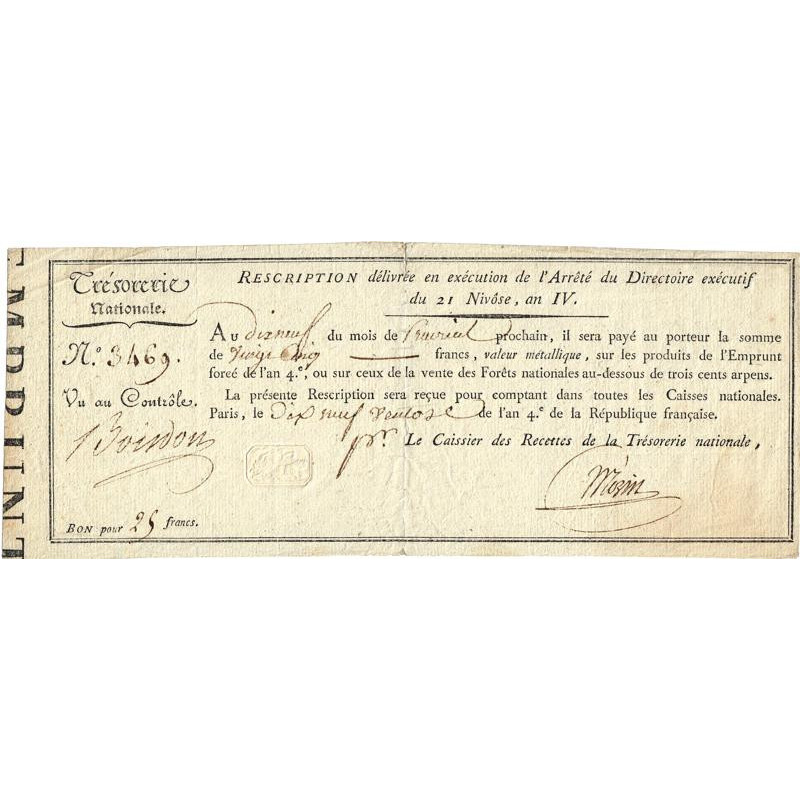 Trésorerie
Nationale.
N.º 3469.
Vu au Contrôle.
Boisdon
BON pour 25 francs.
RESCRIPTION délivrée en exécution de l'Arrêté du Directoire exécutif
du 21 Nivôse, an IV.
AU dix neuf du mois de Prairial prochain, il sera payé au porteur la somme
de Vingt Cinq francs, valeur métallique, sur les produits de l'Emprunt
forcé de l'an 4.e, ou sur ceux de la vente des Forêts nationales au-dessous de trois cents arpens.
La présente Rescription sera reçue pour comptant dans toutes les Caisses nationales.
Paris, le Dix neuf Ventose de l'an 4.e de la République française.
pr. Le Caissier des Recettes de la Trésorerie nationale,